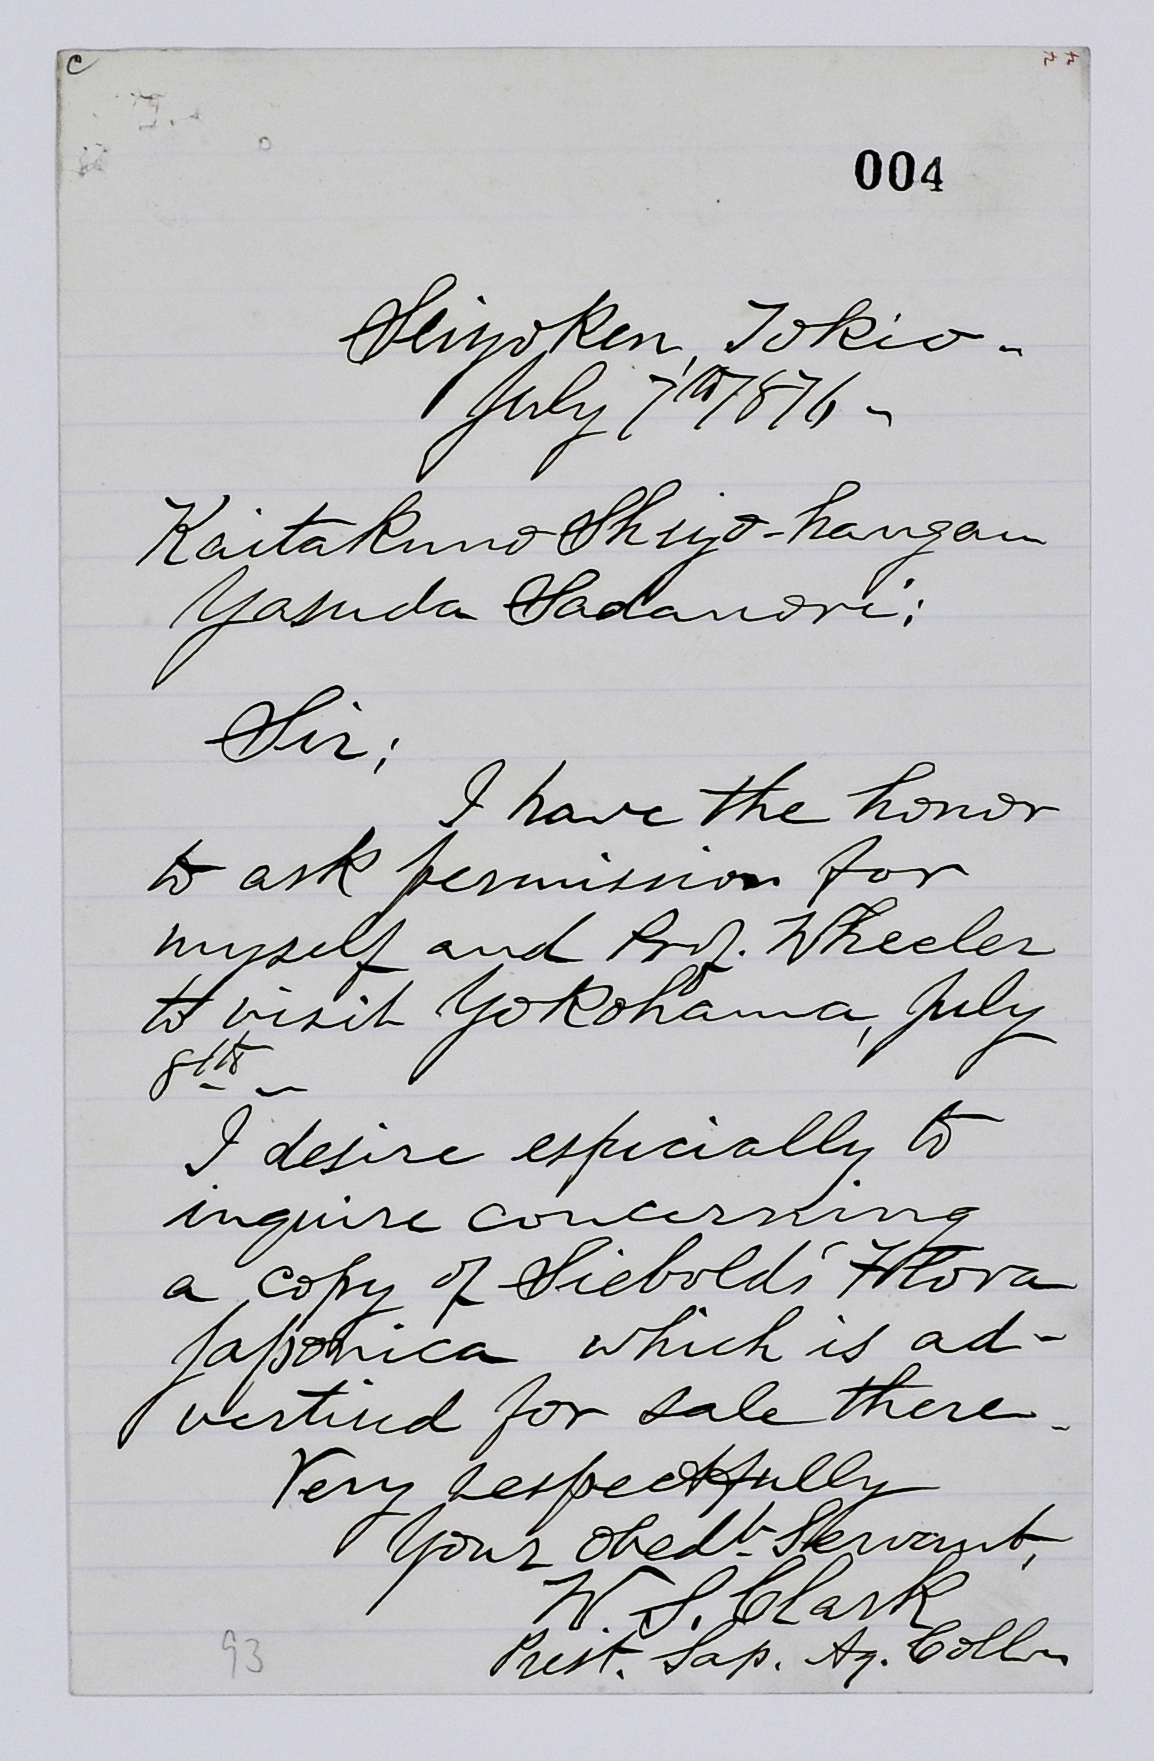 c
004
Seiyoken, Tokio -
July 7th 1876 -
Kaitakuno Shiyo-hangan
Yasuda Sadanori;
Sir;
I have the honor
to ask permission for
myself and Prof. Wheeler
to visit Yokohama, July
8th -
I desire especially to
inquire concerning
a copy of Siebolds' Flora
Japonica which is ad-
vertised for sale there -
Very respectfully
Your obedt. Servant,
W. S. Clark
Prest. Sap. Ag. Coll.
93